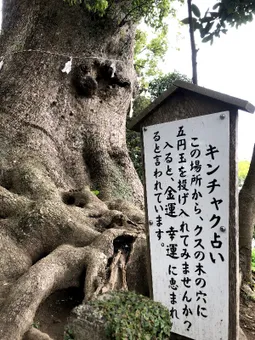 キンチャク占い
この場所から、クスの木の穴に
五円玉を投げ入れてみませんか?
入ると、金運 幸運 に恵まれ
ると言われています。